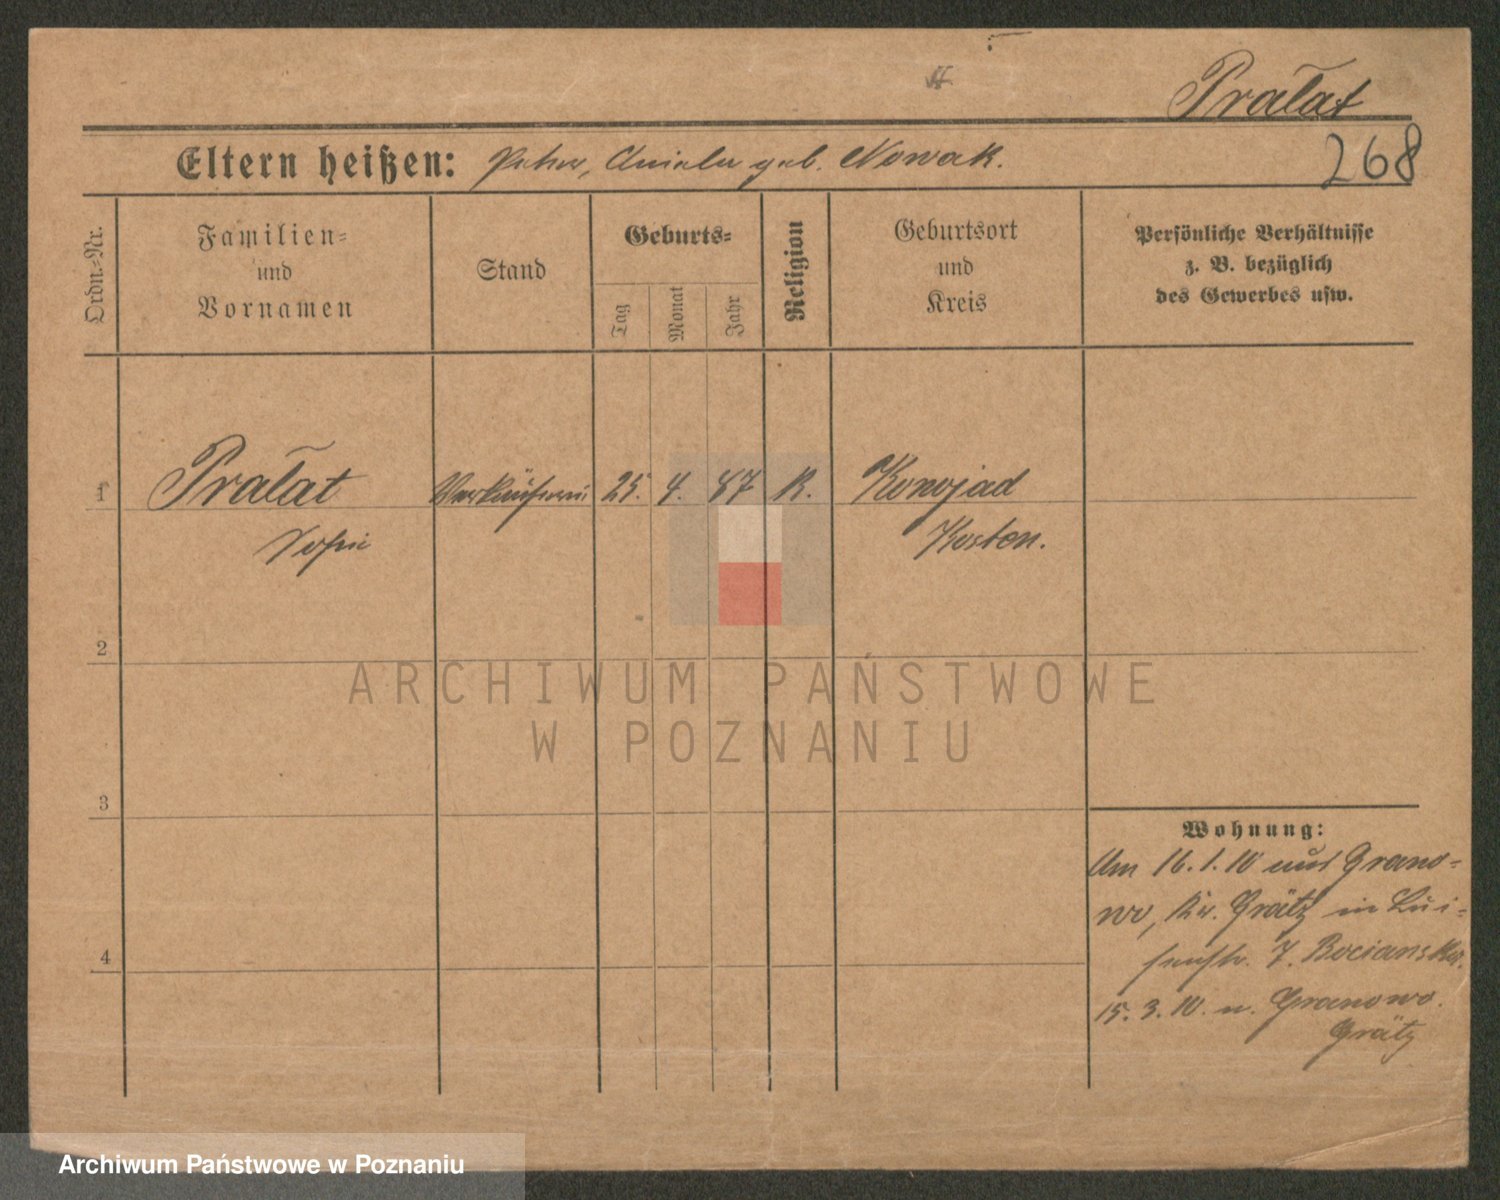 Prałat
268
Eltern heißen: Peter, Aniela geb. Nowak.
Ordn.-Nr.
Familien-
und
Vornamen
Stand
Geburts-
Tag
Monat
Jahr
Religion
Geburtsort
und
Kreis
Persönliche Verhältnisse
z. B. bezüglich
des Gewerbes usw.
1 Prałat Verkäuferin 25. 4. 87 K. Konojad
Sofie Kosten.
2
3
4
Wohnung:
Am 16.1.10 aus Grano-
wo, Kr. Grätz in Lui-
senstr. 7. Bocianska.
15.3.10. n. Granowo.
Grätz
ARCHIWUM PAŃSTWOWE
W POZNANIU
Archiwum Państwowe w Poznaniu